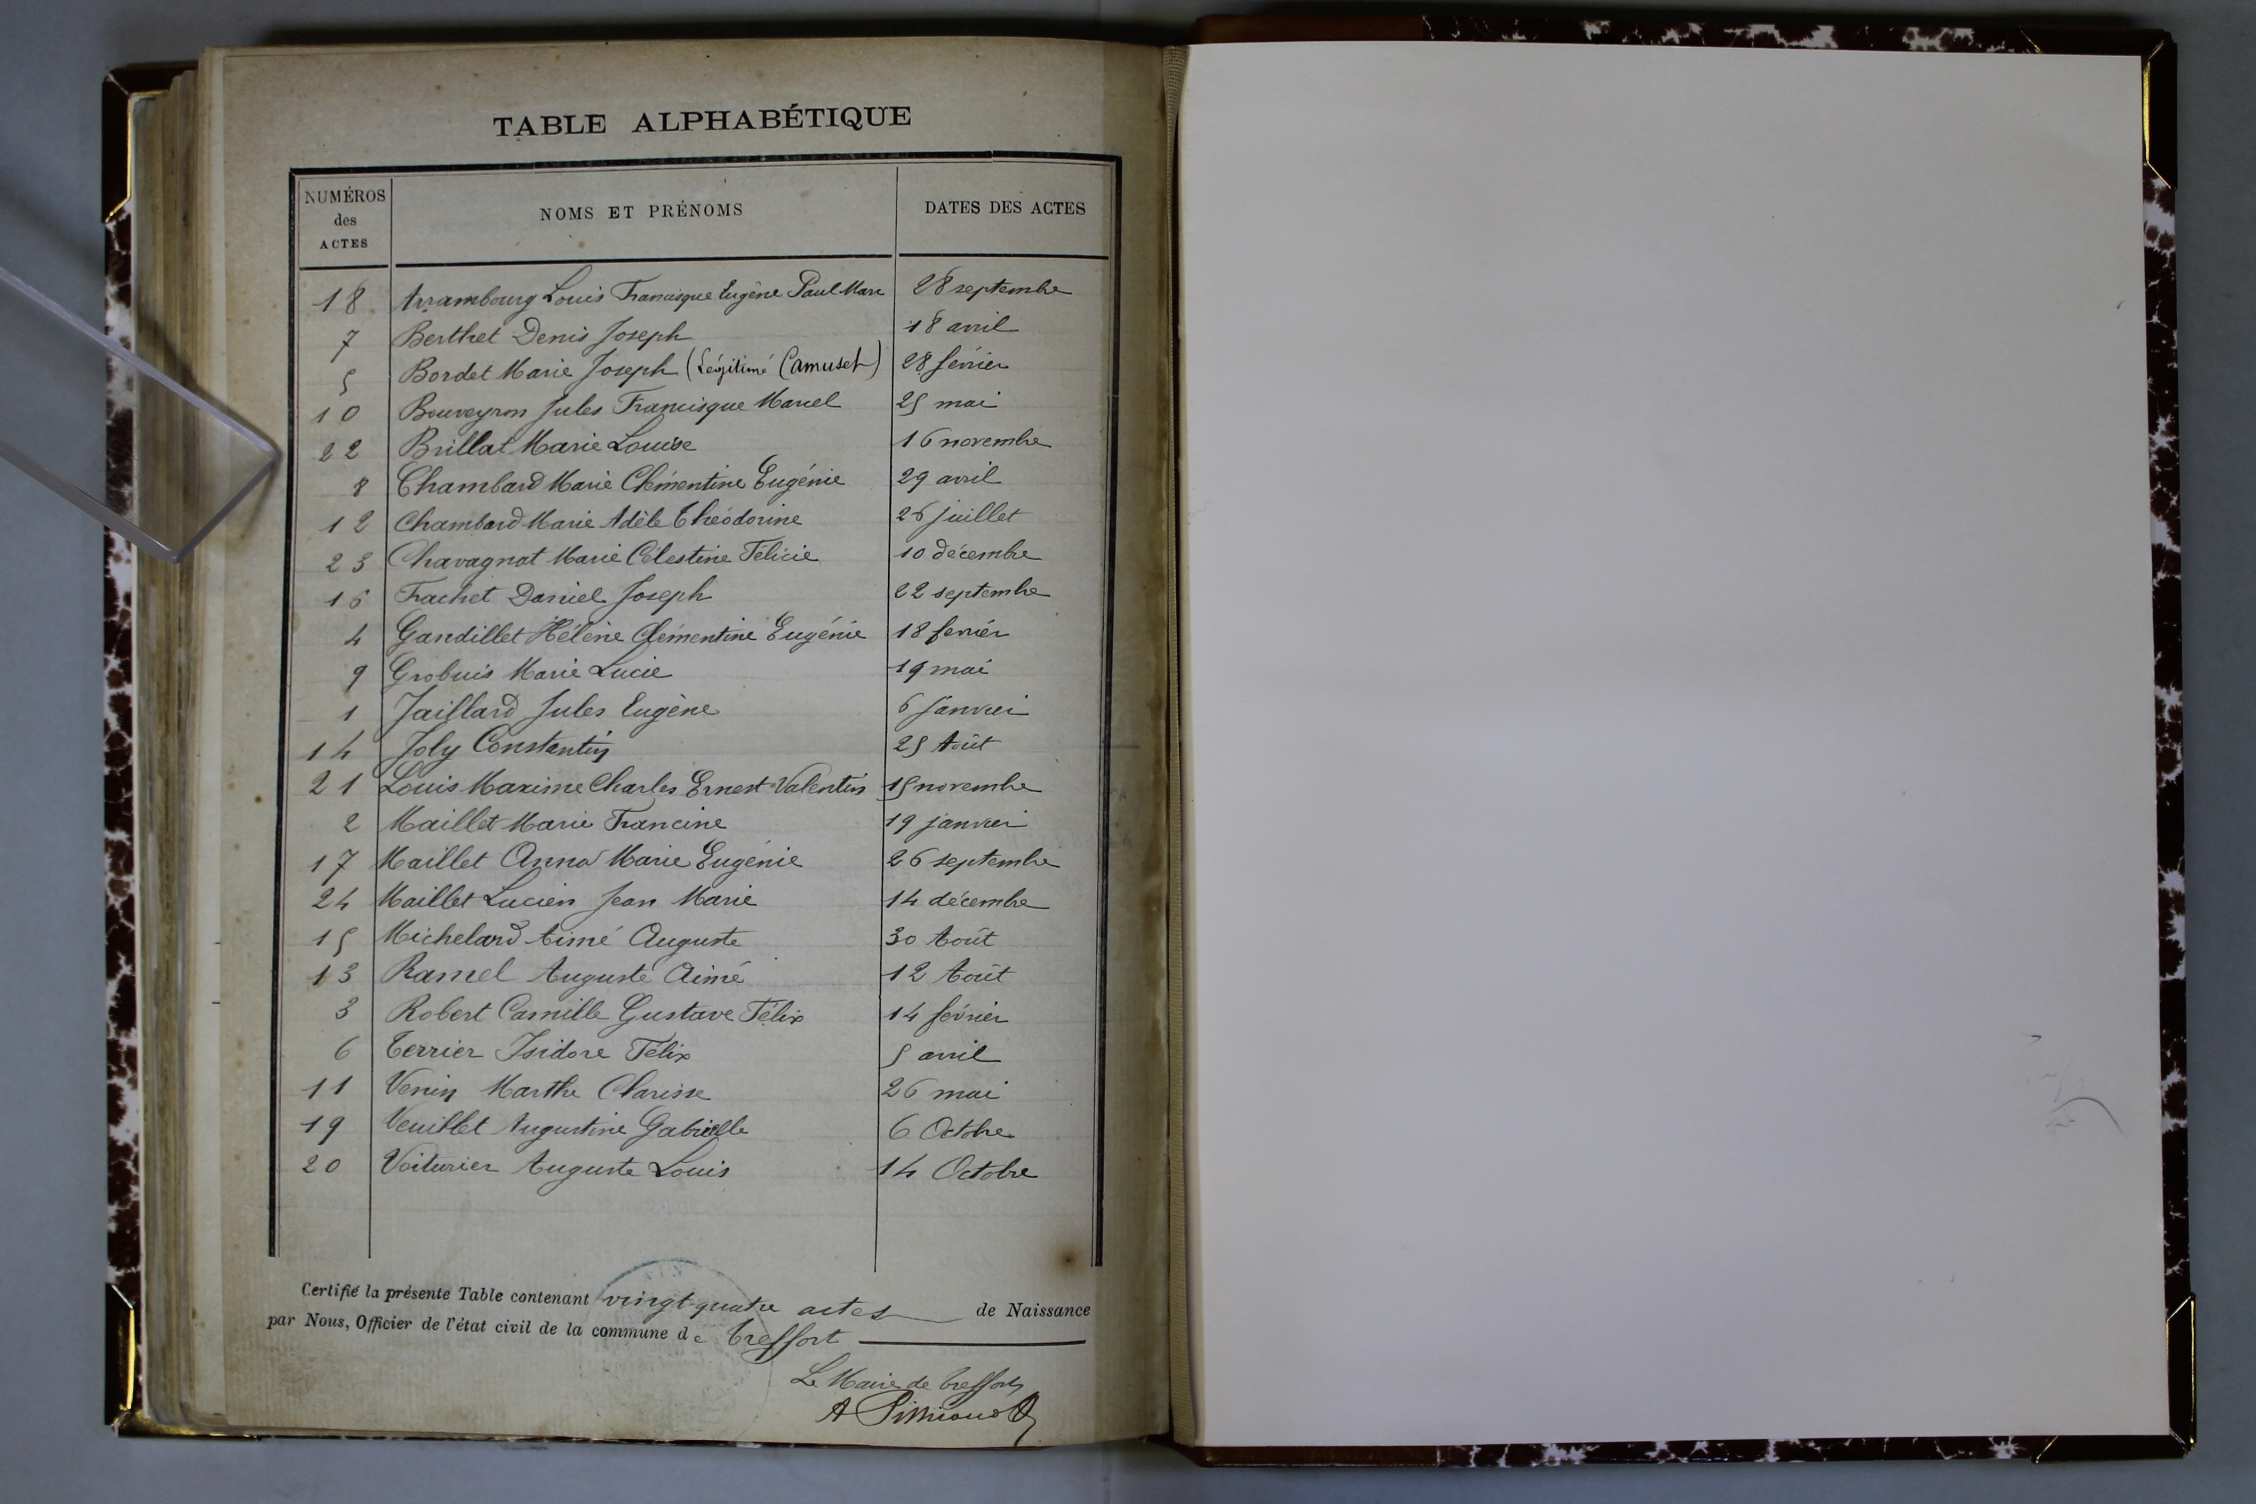 TABLE ALPHABÉTIQUE
NUMÉROS des ACTES NOMS ET PRÉNOMS DATES DES ACTES
18 Arrambourg Louis Francisque Eugène Paul Marc 28 septembre
7 Berthet Denis Joseph 18 avril
5 Bordet Marie Joseph (Légitimé Camuset) 28 février
10 Bouveyron Jules Francisque Marcel 25 mai
22 Brillat Marie Louise 16 novembre
8 Chambard Marie Clémentine Eugénie 29 avril
12 Chambard Marie Adèle Théodorine 26 juillet
23 Chavagnat Marie Célestine Félicie 10 décembre
16 Frachet Daniel Joseph 22 septembre
4 Gandillet Hélène Clémentine Eugénie 18 février
9 Grobuis Marie Lucie 19 mai
1 Jaillard Jules Eugène 6 Janvier
14 Joly Constantin 25 Août
21 Louis Maxime Charles Ernest Valentin 15 novembre
2 Maillet Marie Francine 19 janvier
17 Maillet Anna Marie Eugénie 26 septembre
24 Maillet Lucien Jean Marie 14 décembre
15 Michelard Aimé Auguste 30 Août
13 Ramel Auguste Aimé 12 Août
3 Robert Camille Gustave Félix 14 février
6 Terrier Isidore Félix 5 avril
11 Venin Marthe Clarisse 26 mai
19 Veuillet Augustine Gabrielle 6 Octobre
20 Voiturier Auguste Louis 14 Octobre
Certifié la présente Table contenant vingt-quatre actes de Naissance
par Nous, Officier de l'état civil de la commune de Treffort
Le Maire de Treffort
A